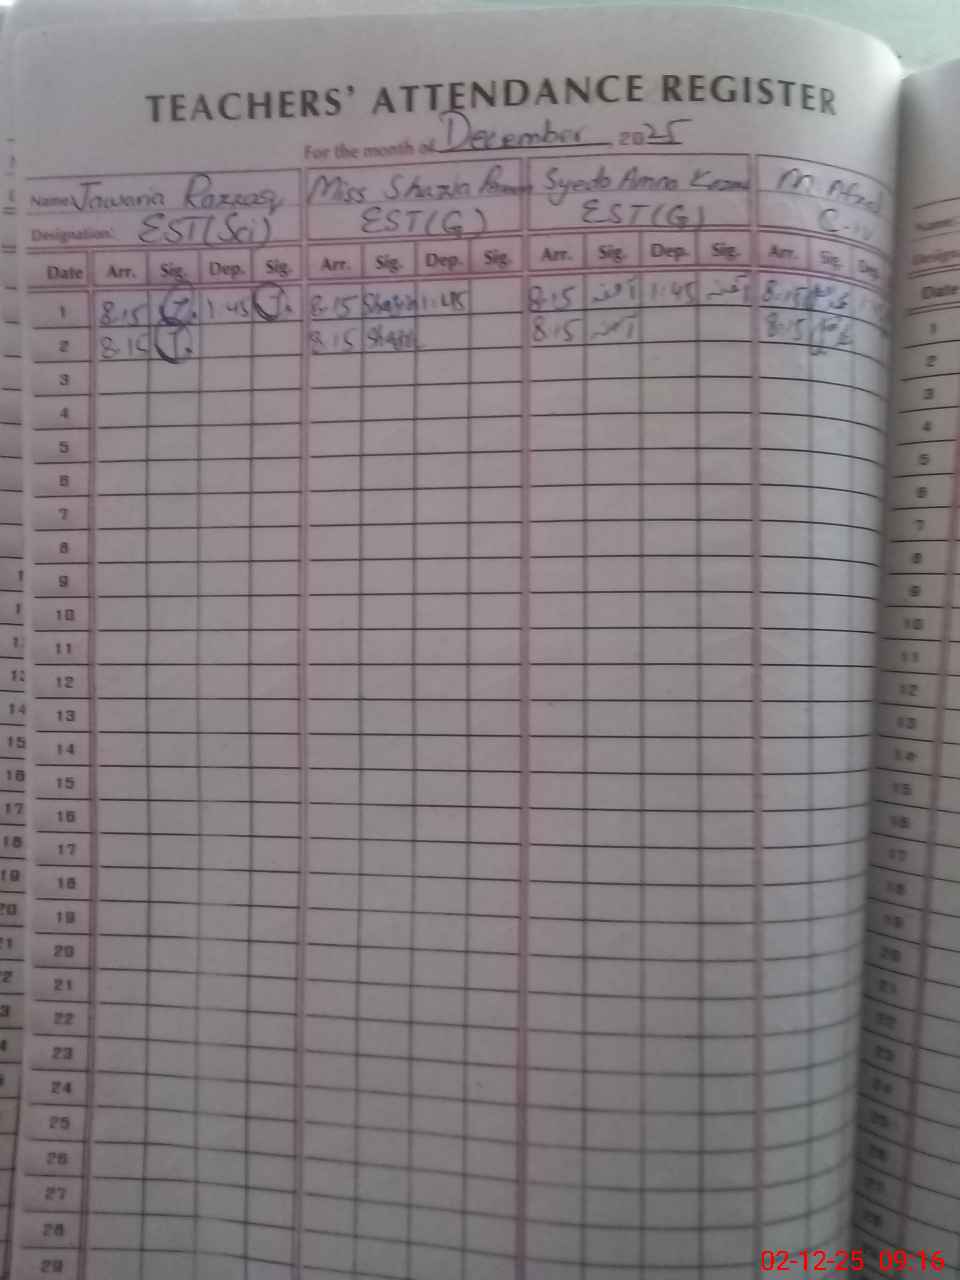 TEACHERS' ATTENDANCE REGISTER
For the month of December 2025
Name Jawaria Razzaq Miss Shazia Syeda Amna M. Afzal
Designation: EST(Sci) EST(G) EST(G) C-iv
Date Arr. Sig. Dep. Sig. Arr. Sig. Dep. Sig. Arr. Sig. Dep. Sig. Arr. Sig. Dep.
1 8.15 J. 1.45 J. 8.15 Shazia 1.45 8.15 آمنہ 1.45 آمنہ 8.15
2 8.15 J. 8.15 Shazia 8.15 آمنہ 8.15
3
4
5
6
7
8
9
10
11
12
13
14
15
16
17
18
19
20
21
22
23
24
25
26
27
28
29
02-12-25 09:16